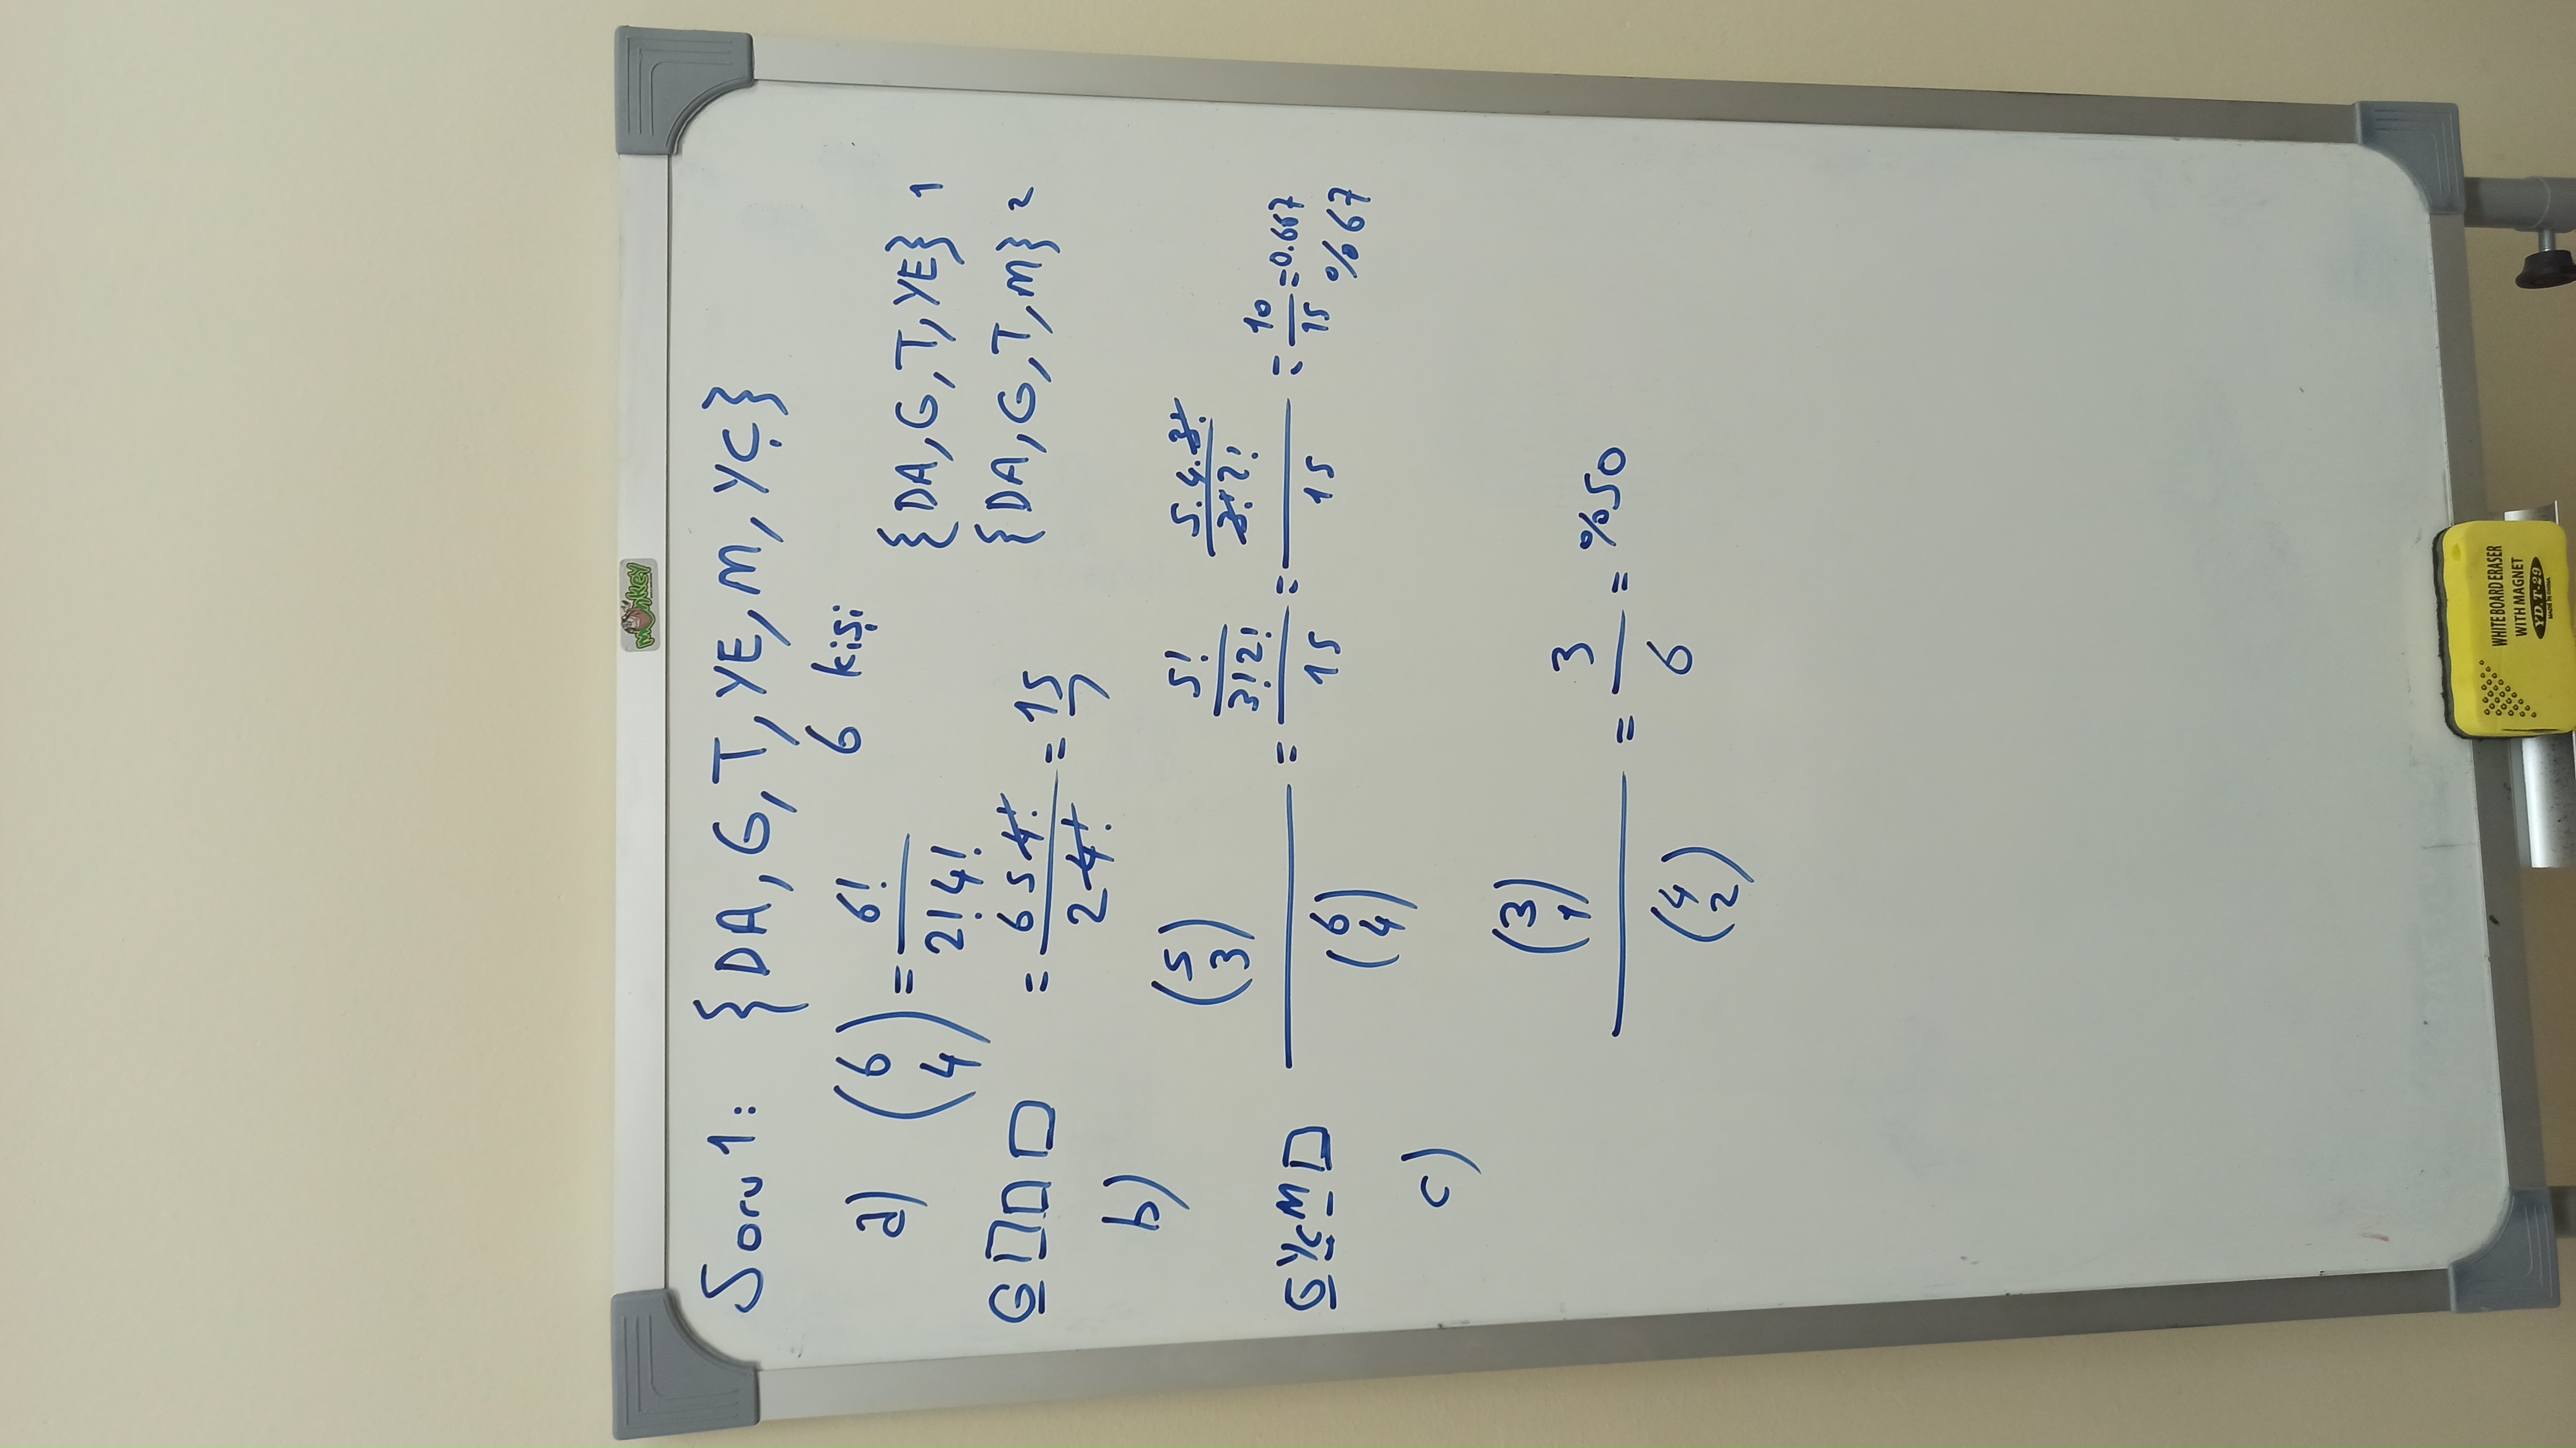 monkey
Soru 1: {DA, G, T, YE, M, YÇ}
6 kişi
a) (6 4) = 6! / 2! 4!
{DA, G, T, YE} 1
{DA, G, T, M} 2
G
= 6 5 4! / 2 4! = 15
b)
(5 3) / (6 4) = 5! / 3! 2! / 15 = 5.4.3! / 3! 2! / 15 = 10 / 15 = 0.667
%67
G YÇ M
c)
(3 1) / (4 2) = 3 / 6 = %50
WHITE BOARD ERASER
WITH MAGNET
YD.T-29
MADE IN CHINA